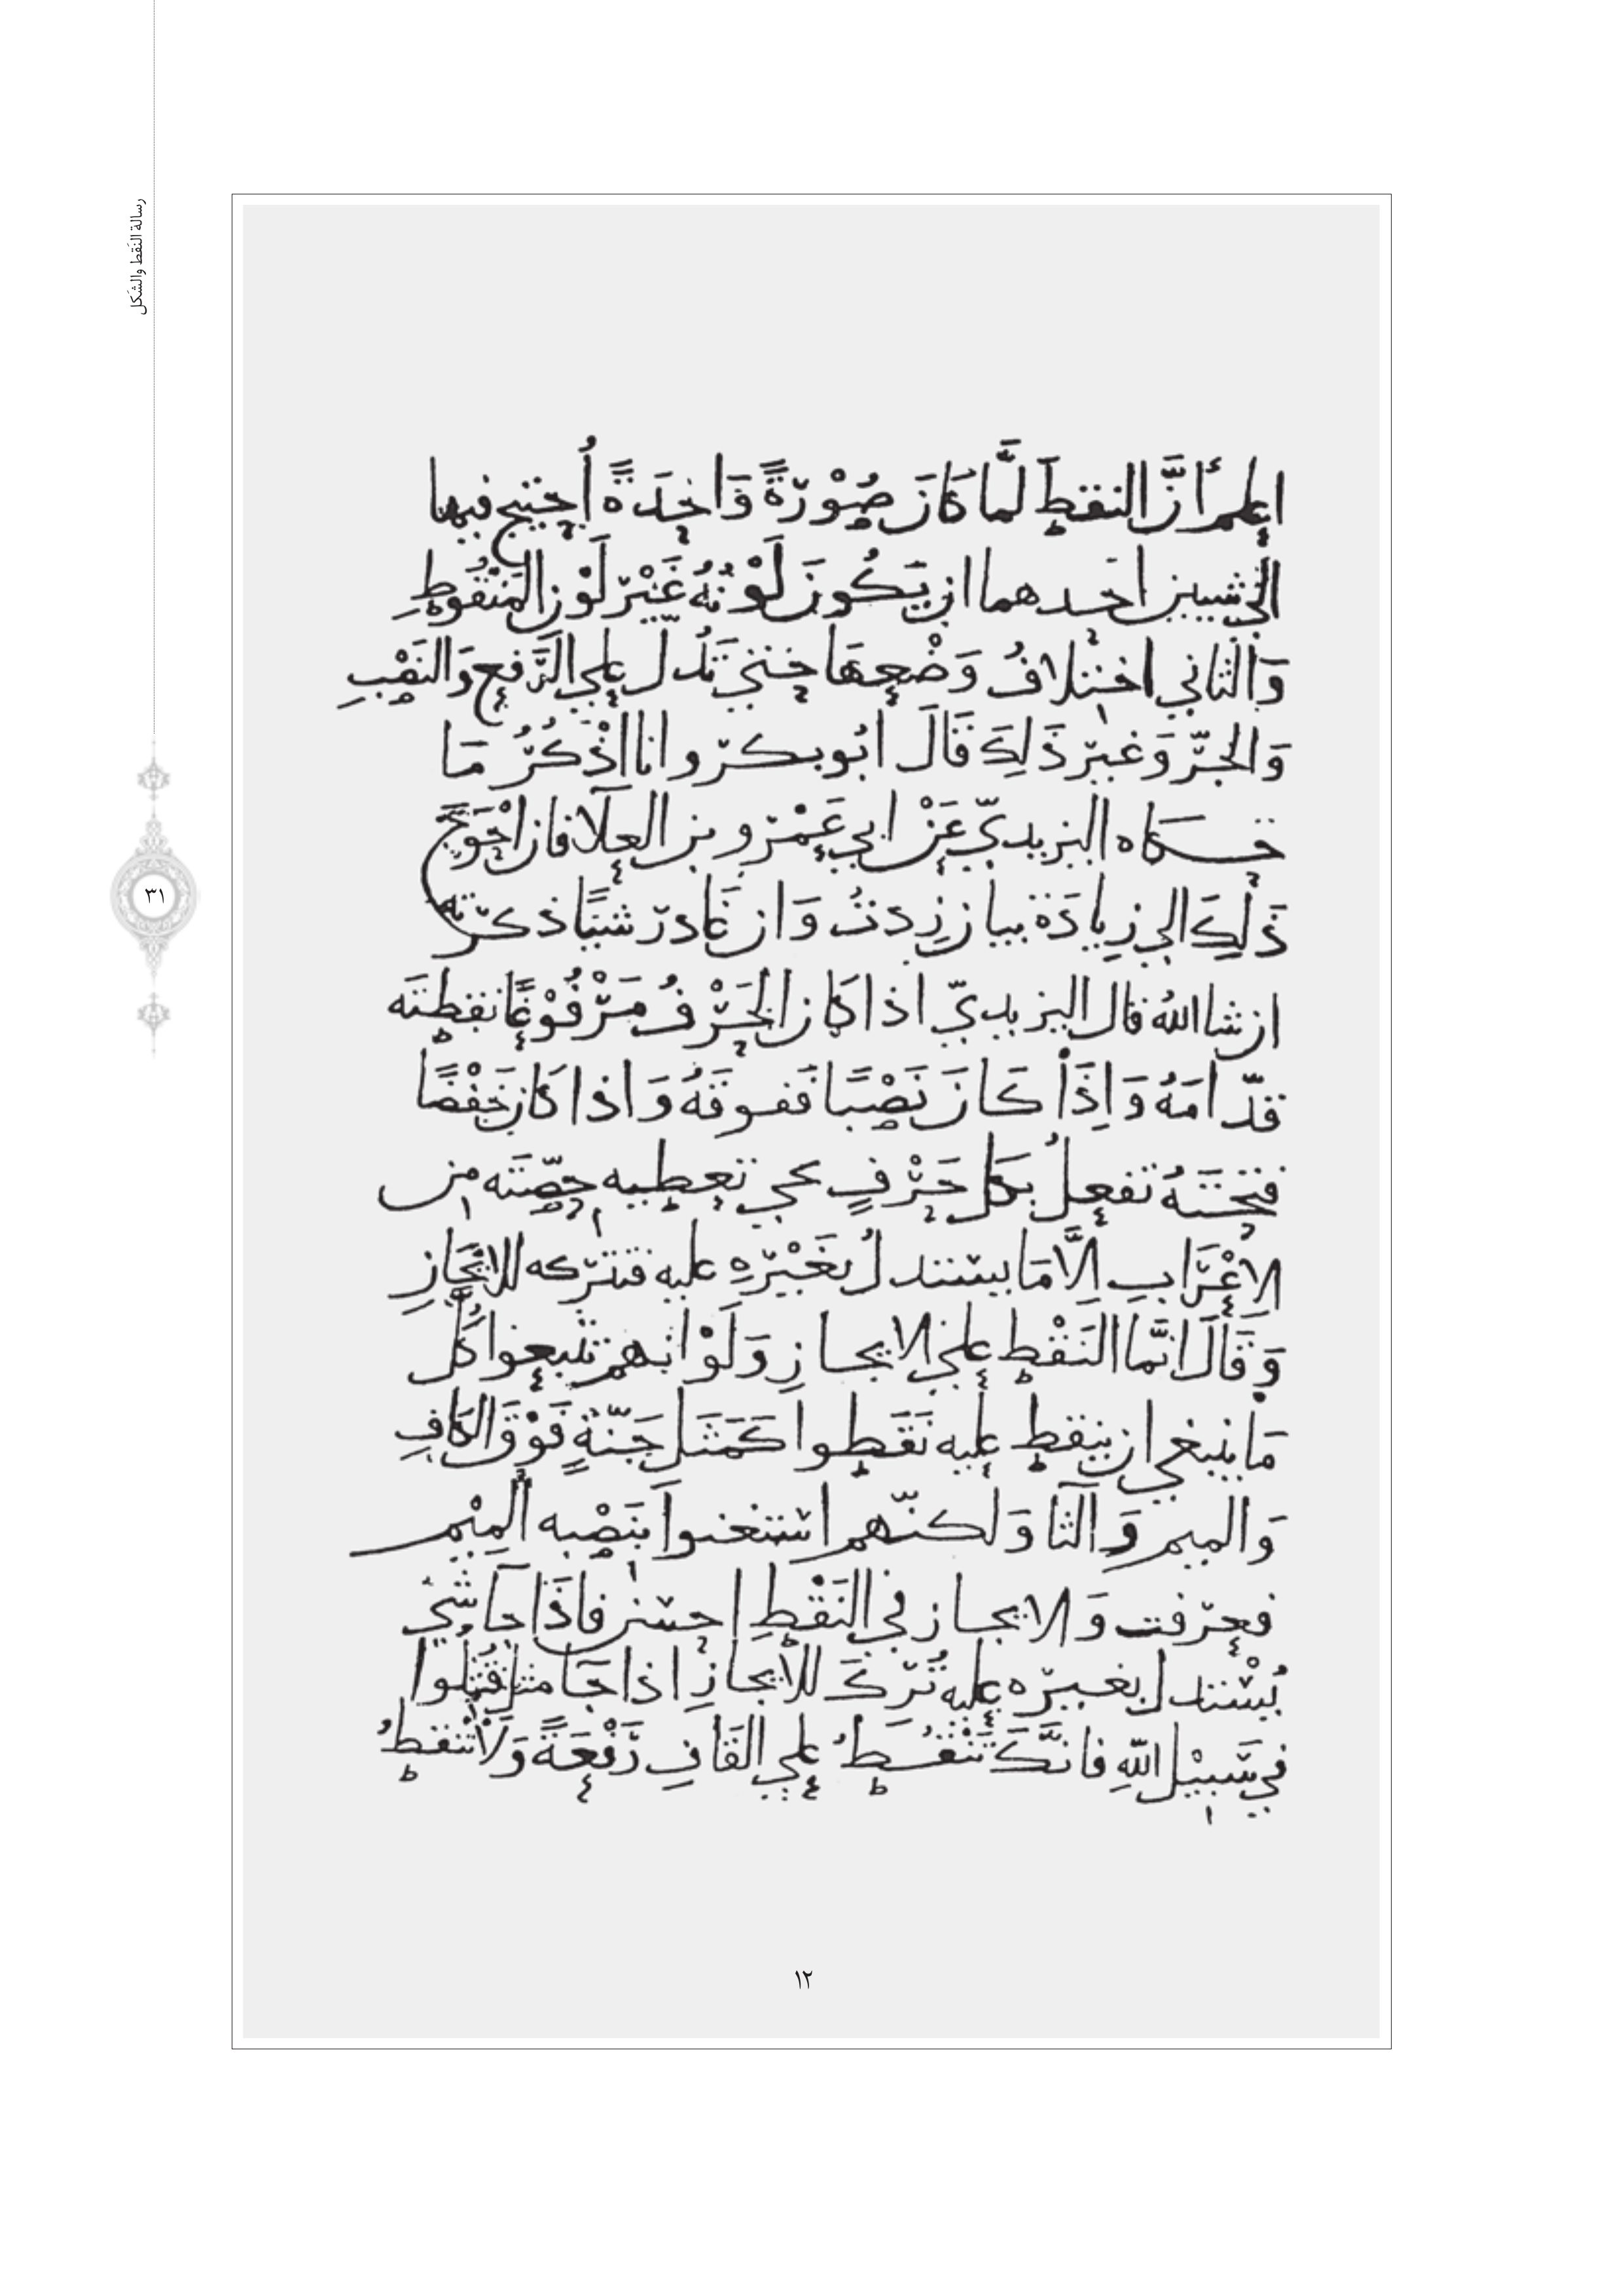 رسالة النقط والشكل
اعلم أنَّ النقط لَمَّا كَانَ صُوْرَةً وَاحِدَةً أُحتيج فيها
الى شيين احَدهما ان يَكُونَ لَوْنُهُ غَيْرَ لَوْنِ المَنْقُوطِ
وَالثاني اختلافُ وَضْعِهَا حَتى تَدُل على الرَّفعِ وَالنَصْبِ
وَالجَرّ وَغيرَ ذَلِكَ قَالَ ابُو بكرٍ وانا اذْكُرُ مَا
حَكاه اليزيديّ عَنْ ابي عَمْرو بن العلآ فان احْوَجَ
ذَلِكَ الى زِيادَة بيان زِدتُ وَان غَادر شيًا ذكرته
ان شا اللهُ قال اليزيديّ اذا كان الحَرْفُ مَرْفُوْعًا نقطتَه
قدّامَهُ وَاِذَا كَانَ نَصْبًا ففوقَهُ وَاذا كَان خَفْضًا
فتَحْتَهُ تفعلُ بكل حَرْفٍ حتى تعطيه حِصّتَه من
الاِعْرَابِ اِلَّا مَا يستدلُ بغَيْرِهِ عليه فتتركه للايجَازِ
وَقَالَ انَّما النَقْط على الايجازِ وَلَوْ انهم تتبعوا كُل
مَا ينبغي ان ينقط عليه نَقَطوا كَمَثَل جَنّةٍ فَوْقَ الكَافِ
وَالميم وَالثا وَلكنّهم استغنوا بنَصْبه المِيْم
فعرفت وَالايجاز في النَقْطِ احسَن فاذَا جَآ شَي
يُسْتدل بغيره عليه تُرَكَ للايجَازِ اذا جَآ مثل قُتِلُوا
في سَبِيْلِ اللهِ فانَّكَ تَنْقُطُ على القَافِ رَفْعَةً وَلَا تنقطُ
١٢
٣١